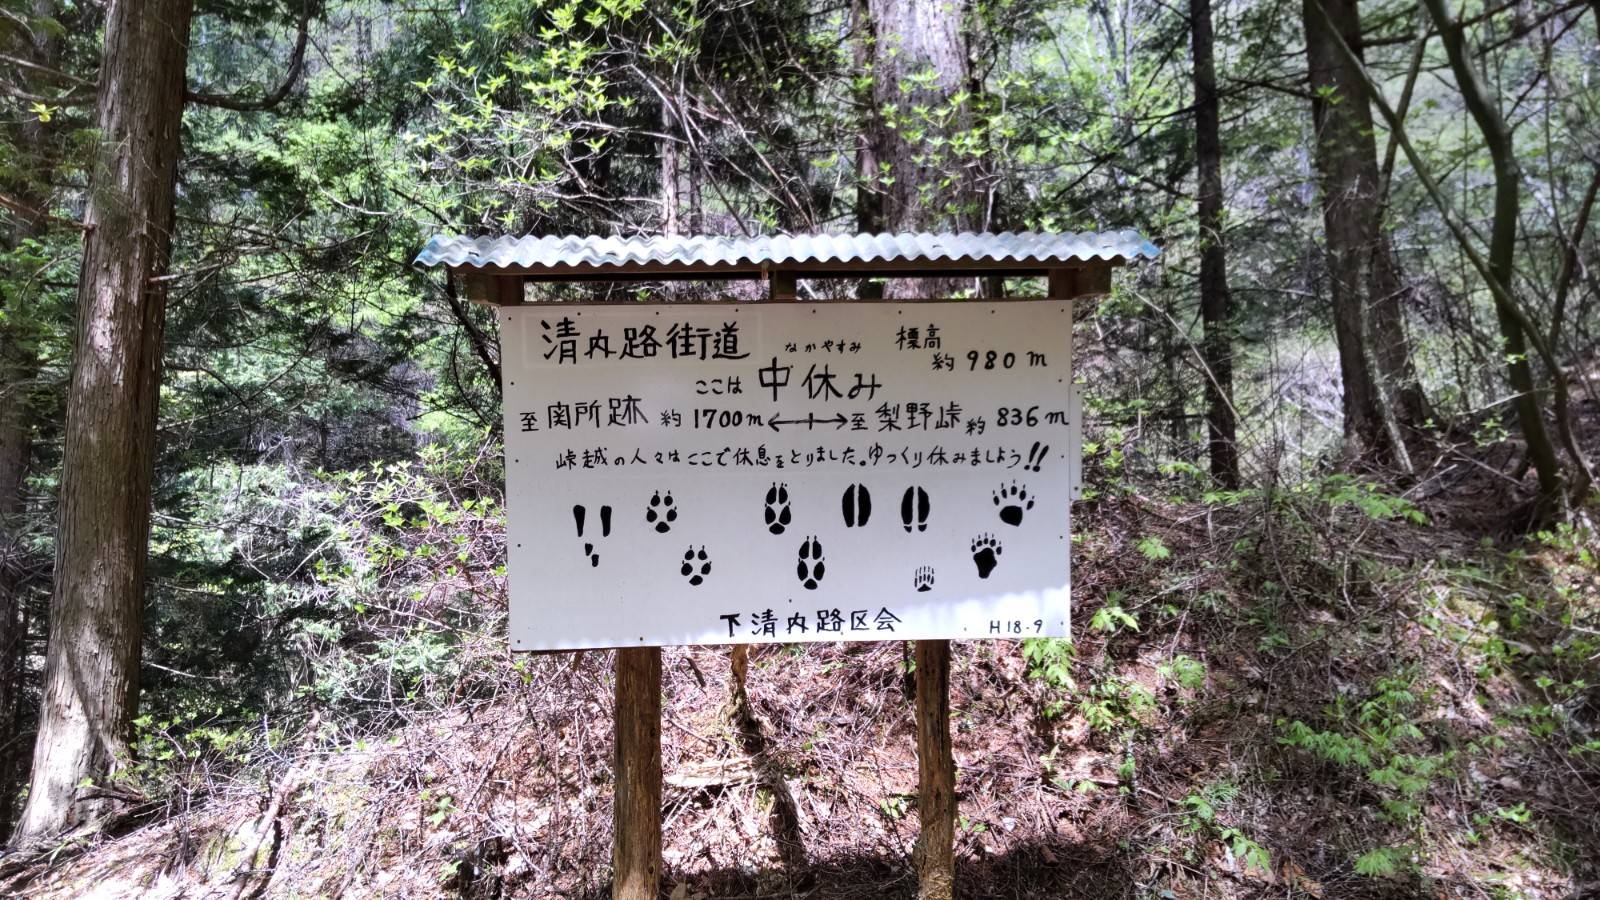 清内路街道
なかやすみ
標高
約980m
ここは 中休み
至関所跡 約1700m←┼→至梨野峠約836m
峠越の人々はここで休息をとりました。ゆっくり休みましよう!!
下清内路区会
H18-9